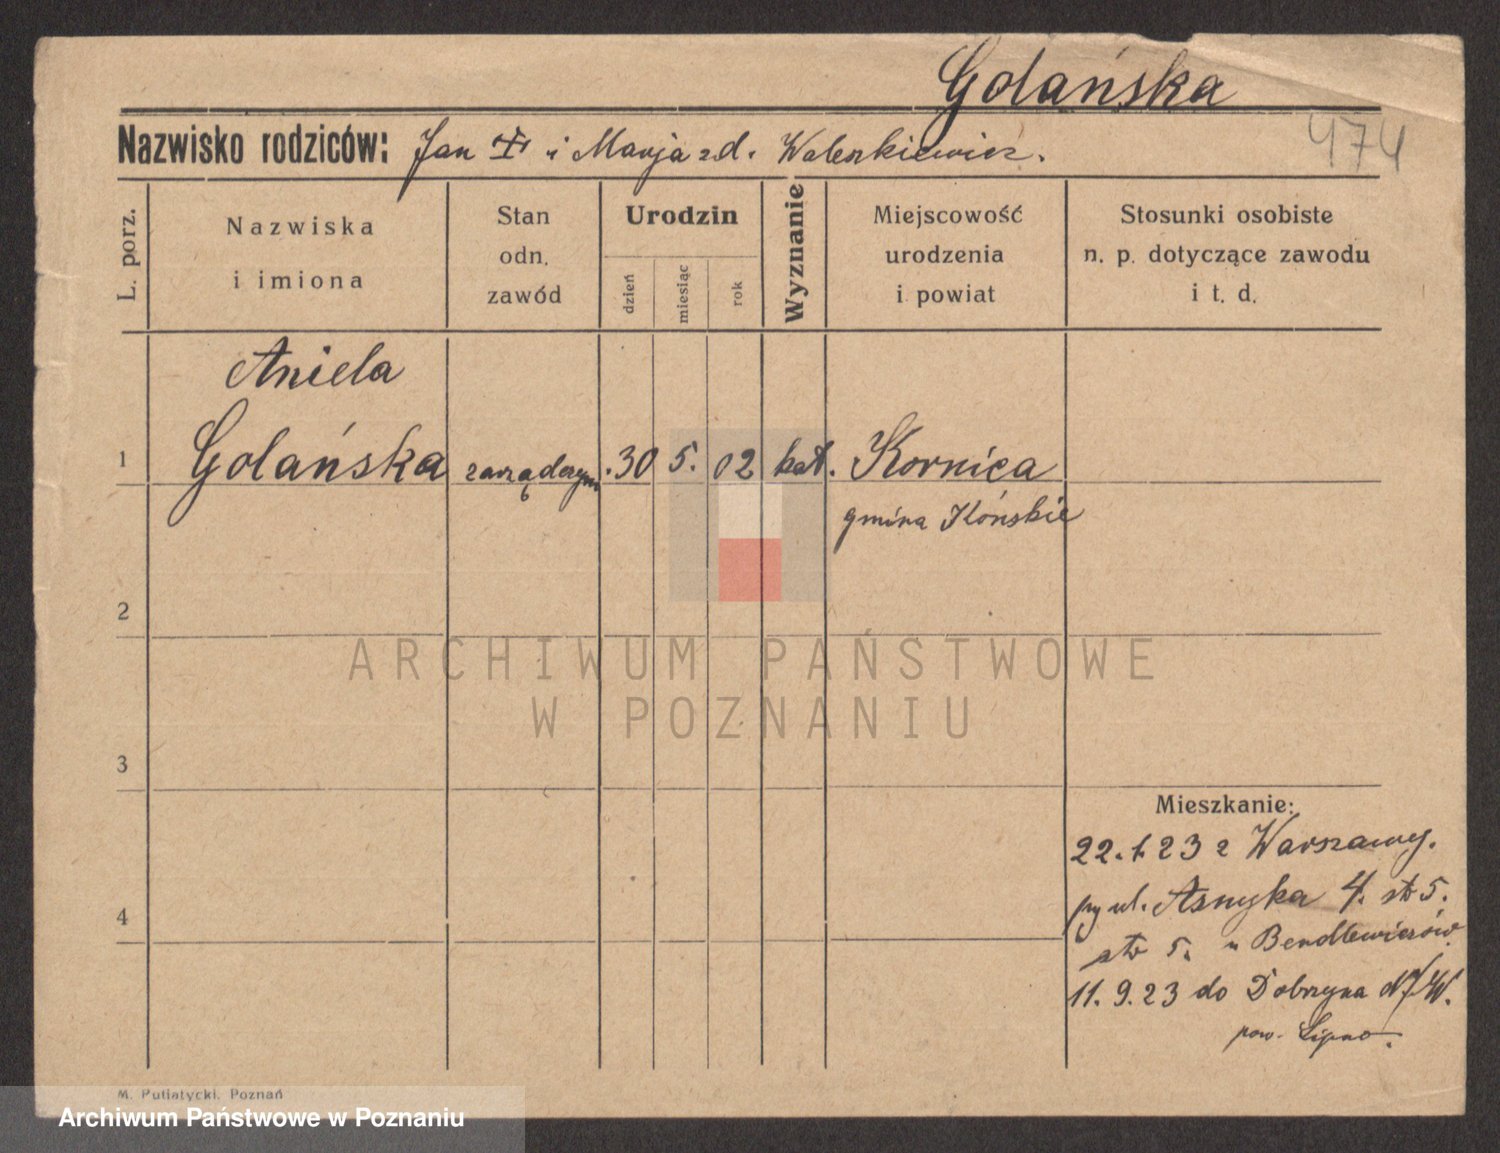 Golańska
474
Nazwisko rodziców: Jan i Marja zd. Waleszkiewicz.
L. porz.
Nazwiska
i imiona
Stan
odn.
zawód
Urodzin
dzień
miesiąc
rok
Wyznanie
Miejscowość
urodzenia
i powiat
Stosunki osobiste
n. p. dotyczące zawodu
i t. d.
Aniela
1 Golańska 30 5. 02 kat. Kornica
gmina Końskie
2
ARCHIWUM PAŃSTWOWE
W POZNANIU
3
Mieszkanie:
22.1.23 z Warszawy.
ul. Asnyka 4. 5.
5. u
4
11.9.23 do Dobrzyna n/W.
pow. Lipno.
M. Putiatycki, Poznań
Archiwum Państwowe w Poznaniu